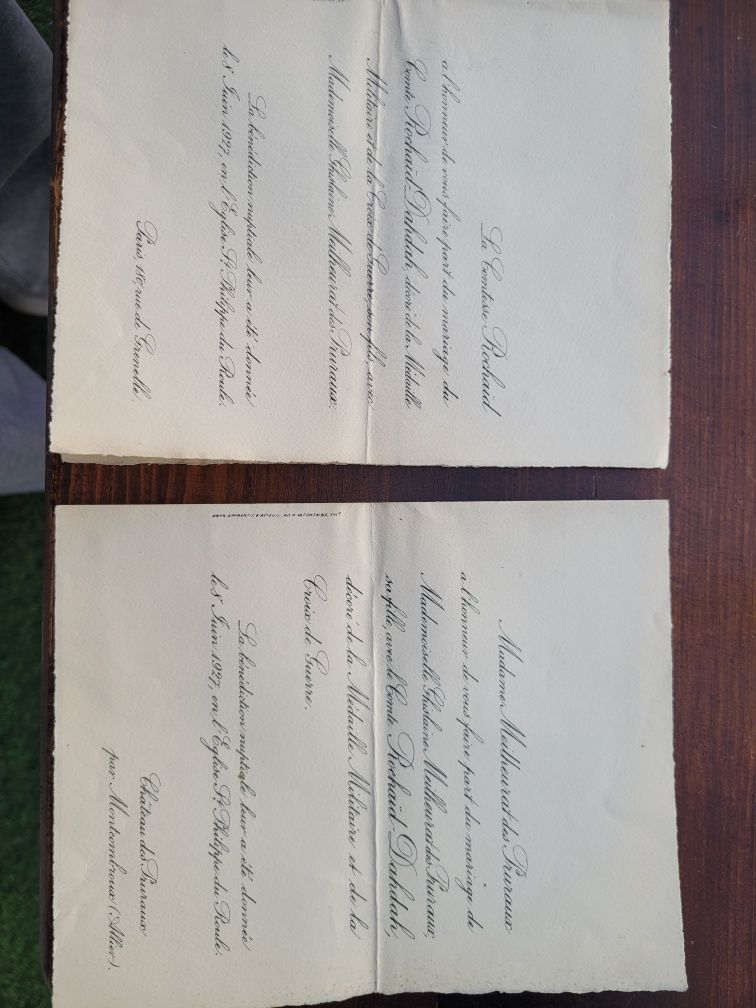 La Comtesse Rochaïd
a l'honneur de vous faire part du mariage du
Comte Rochaïd Dahdah, décoré de la Médaille
Militaire et de la Croix de Guerre, son fils, avec
Mademoiselle Ghislaine Meilheurat des Pruraux.
La bénédiction nuptiale leur a été donnée
le 8 Juin 1927, en l'Eglise St. Philippe du Roule.
Paris, 187, rue de Grenelle.
Madame Meilheurat des Pruraux
a l'honneur de vous faire part du mariage de
Mademoiselle Ghislaine Meilheurat des Pruraux,
sa fille, avec le Comte Rochaïd Dahdah,
décoré de la Médaille Militaire et de la
Croix de Guerre.
La bénédiction nuptiale leur a été donnée
le 8 Juin 1927, en l'Eglise St. Philippe du Roule.
Château des Pruraux
par Montcombroux (Allier).
D'AUTEUIL, 40 R. LA FONTAINE, XVIe